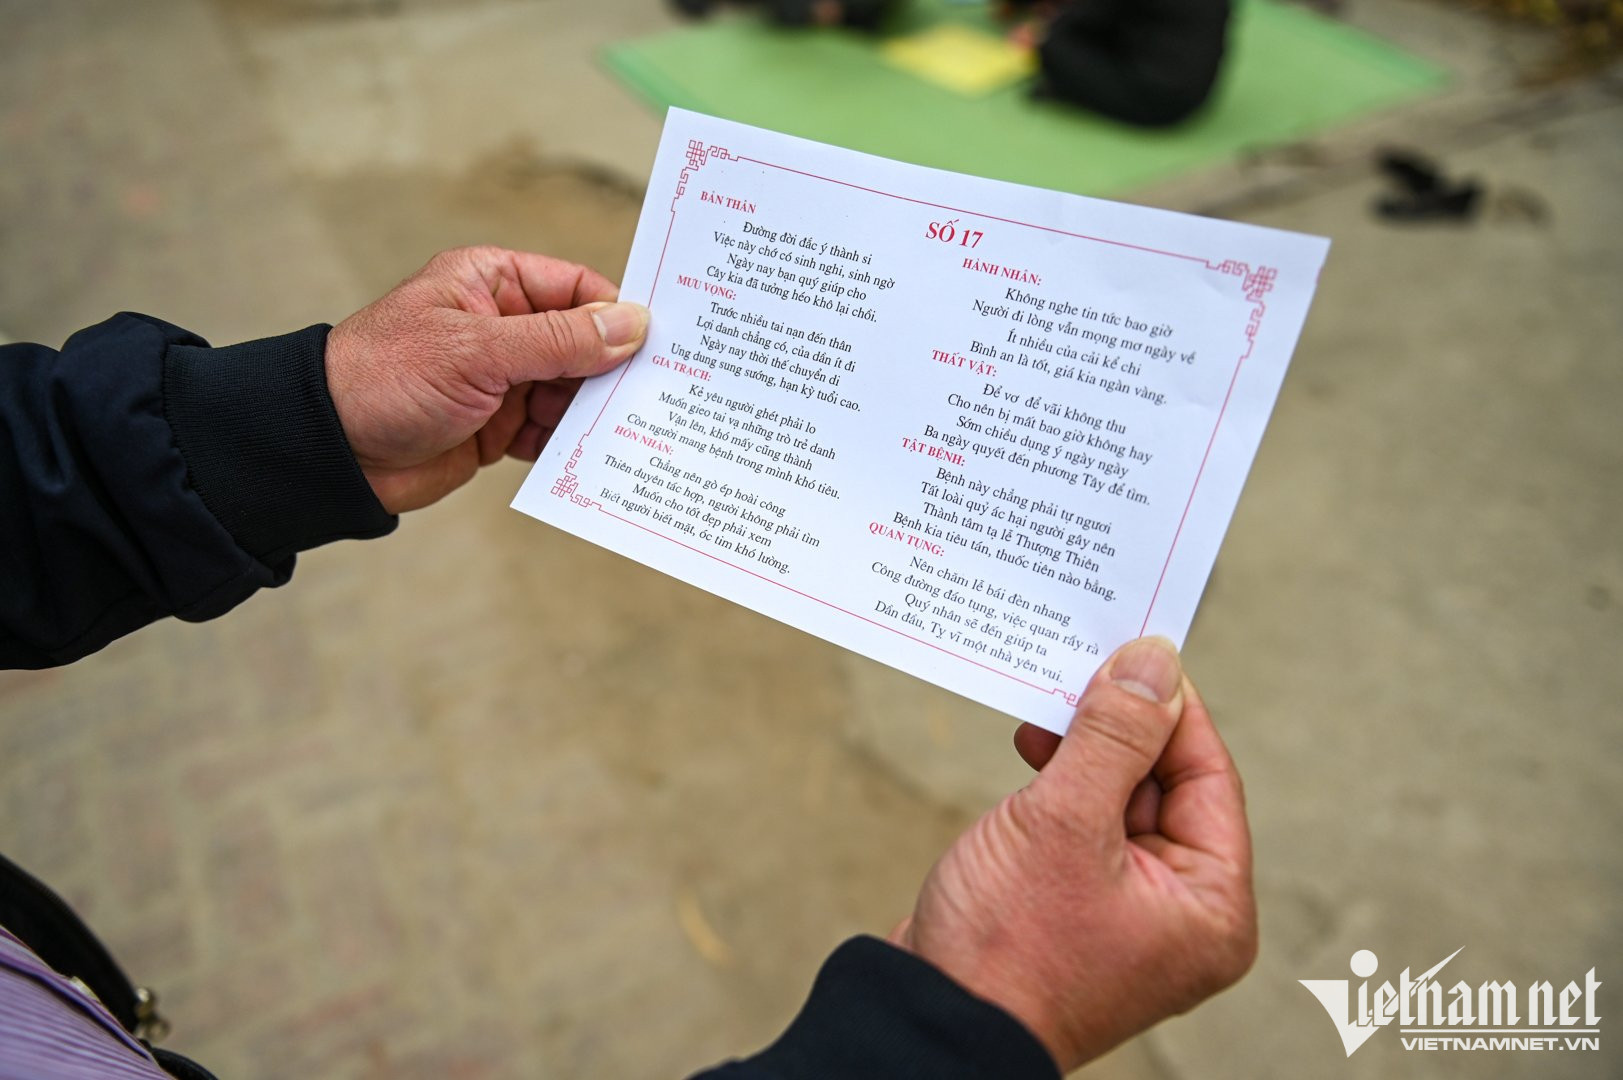 SỐ 17
BẢN THÂN
Đường đời đắc ý thành si
Việc này chớ có sinh nghi, sinh ngờ
Ngày nay bạn quý giúp cho
Cây kia đã tưởng héo khô lại chồi.
MƯU VỌNG:
Trước nhiều tai nạn đến thân
Lợi danh chẳng có, của dần ít đi
Ngày nay thời thế chuyển di
Ung dung sung sướng, hạn kỳ tuổi cao.
GIA TRẠCH:
Kẻ yêu người ghét phải lo
Muốn gieo tai vạ những trò trẻ danh
Vận lên, khó mấy cũng thành
Còn người mang bệnh trong mình khó tiêu.
HÔN NHÂN:
Chẳng nên gò ép hoài công
Thiên duyên tác hợp, người không phải tìm
Muốn cho tốt đẹp phải xem
Biết người biết mặt, óc tim khó lường.
HÀNH NHÂN:
Không nghe tin tức bao giờ
Người đi lòng vẫn mọng mơ ngày về
Ít nhiều của cải kể chi
Bình an là tốt, giá kia ngàn vàng.
THẤT VẬT:
Để vơ để vãi không thu
Cho nên bị mất bao giờ không hay
Sớm chiều dụng ý ngày ngày
Ba ngày quyết đến phương Tây để tìm.
TẬT BỆNH:
Bệnh này chẳng phải tự ngươi
Tất loài quỷ ác hại người gây nên
Thành tâm tạ lễ Thượng Thiên
Bệnh kia tiêu tán, thuốc tiên nào bằng.
QUAN TỤNG:
Nên chăm lễ bái đèn nhang
Công đường đáo tụng, việc quan rầy rà
Quý nhân sẽ đến giúp ta
Dần đầu, Tỵ vĩ một nhà yên vui.
Vietnamnet
VIETNAMNET.VN